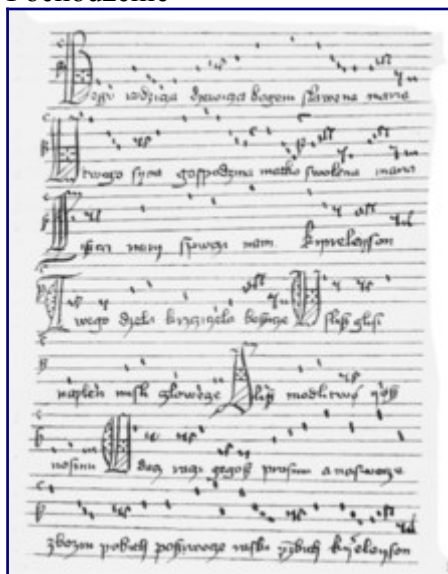 Pochodzenie
Bogv rodzicza dzewicza bogem slawena maria
U twego syna gospodzina matko swolena maria
nam nam kyrieleyson
Twego dzela krzcziczela bozicze Uslisz glosi
naplen misli czlowecze Slisz modlitwo yosz
nosimi raczi gegosz prosimi a naswecze
zbozni pobith kyrieleyson